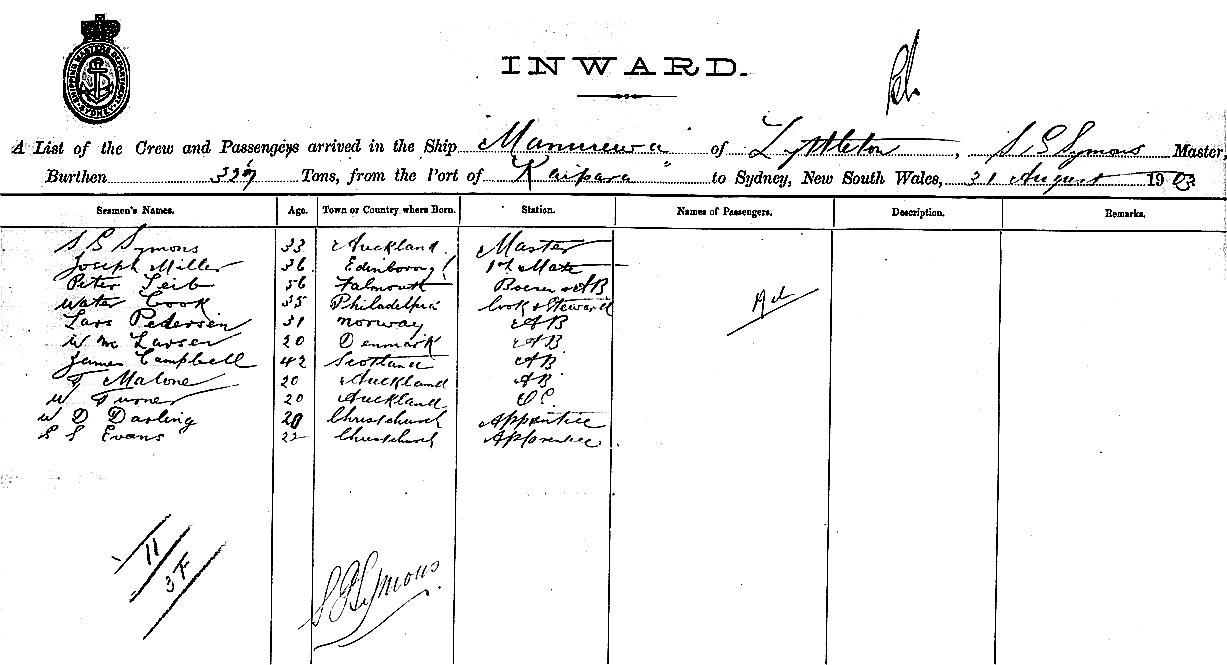 SHIPPING MASTERS DEPARTMENT SYDNEY
INWARD.
A List of the Crew and Passengers arrived in the Ship Manurewa of Lyttleton, S G Symons Master,
Burthen Tons, from the Port of Kaipara to Sydney, New South Wales, 31 August 1903
Seamen's Names. Age. Town or Country where Born. Station. Names of Passengers. Description. Remarks.
S G Symons 33 Auckland Master
Joseph Miller 36 Edinborough 1st Mate
Peter Leib 56 Falmouth AB
Water Cook 35 Philadelphia Cook & Steward
Lars Pedersen 31 Norway AB
Wm Larsen 20 Denmark AB
James Campbell 42 Scotland AB
F Malone 20 Auckland AB
W Turner 20 Auckland
W D Darling 20 Christchurch Apprentice
S S Evans 22 Christchurch Apprentice
11
3 F
S G Symons